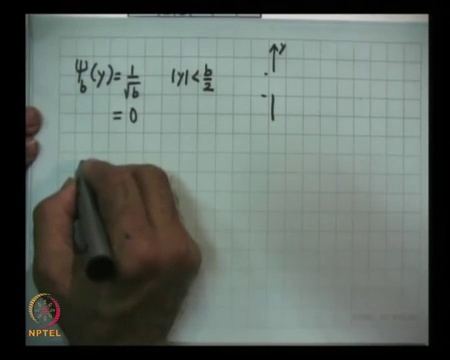 ψ_b(y) = 1/√b |y| < b/2
= 0
y
NPTEL